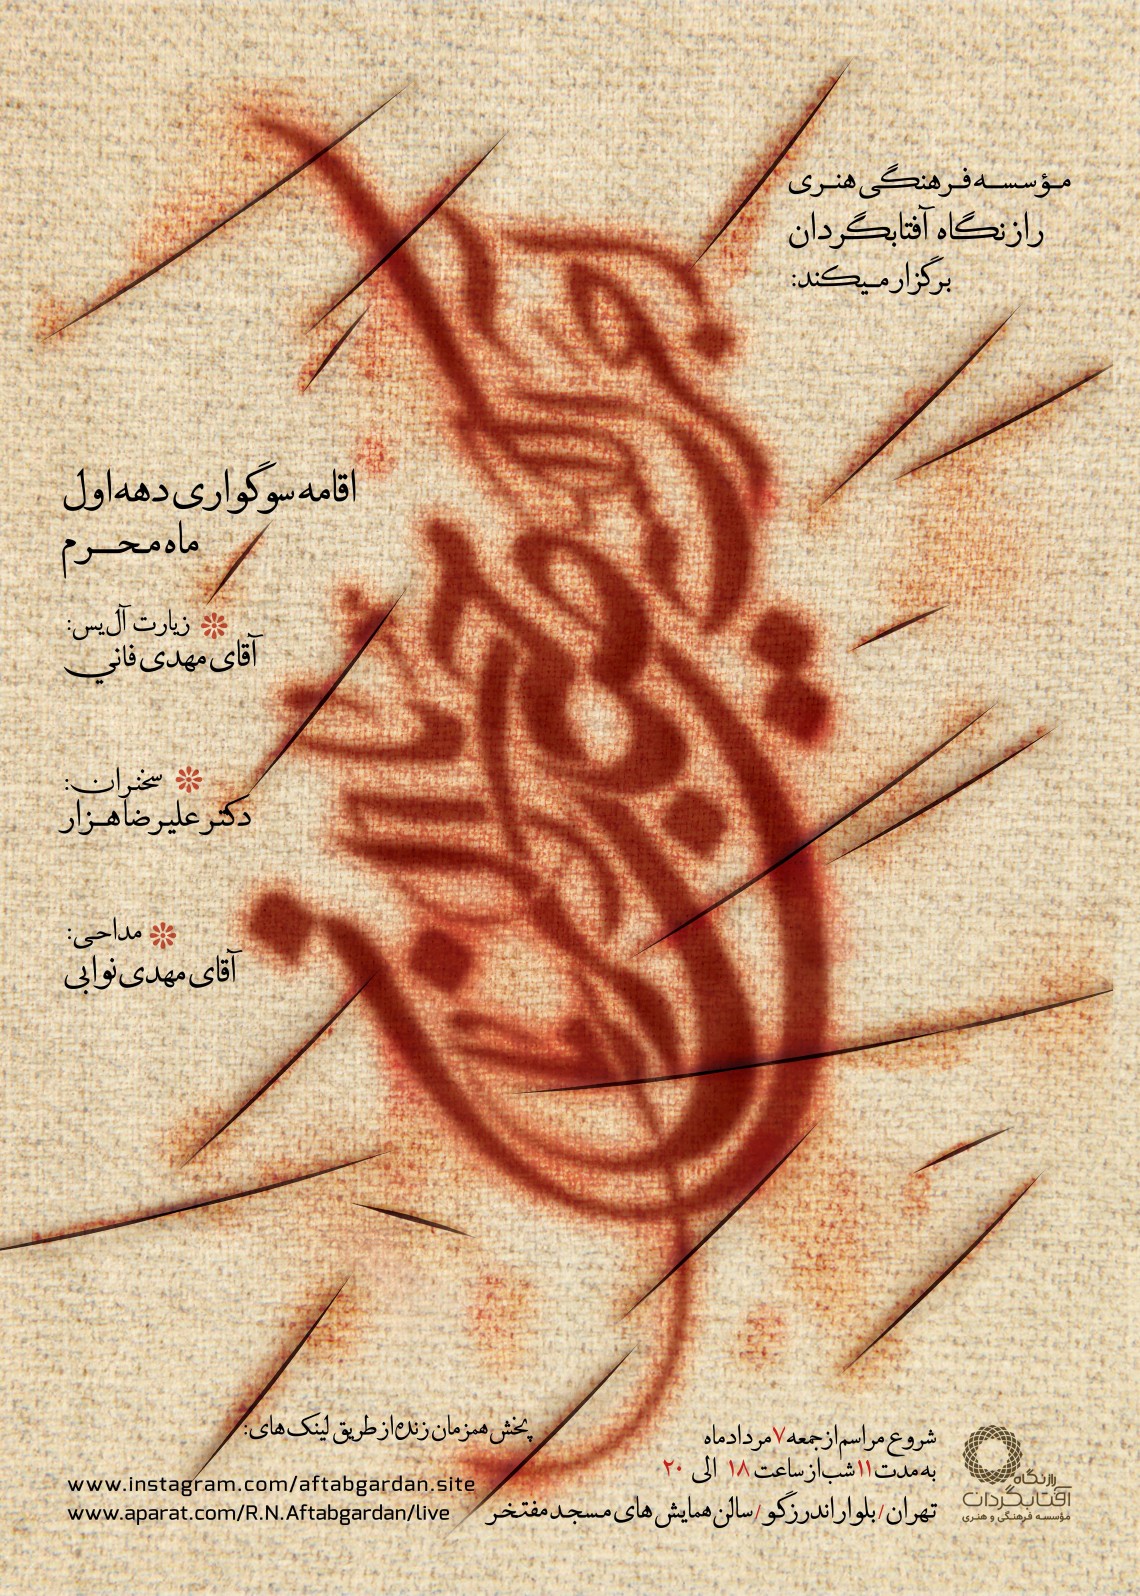 مؤسسه فرهنگی هنری
رازنگاه آفتابگردان
برگزار میکند:
اقامه سوگواری دهه اول
ماه محرم
زیارت آل یس:
آقای مهدی فاني
سخنران:
دکتر علیرضا هزار
مداحی:
آقای مهدی نوابی
شروع مراسم از جمعه ۷ مرداد ماه
به مدت ۱۱ شب از ساعت ۱۸ الی ۲۰
تهران / بلوار اندرزگو / سالن همایش های مسجد مفتخر
پخش همزمان زنده از طریق لینک های:
www.instagram.com/aftabgardan.site
www.aparat.com/R.N.Aftabgardan/live
رازنگاه
آفتابگردان
مؤسسه فرهنگی و هنری